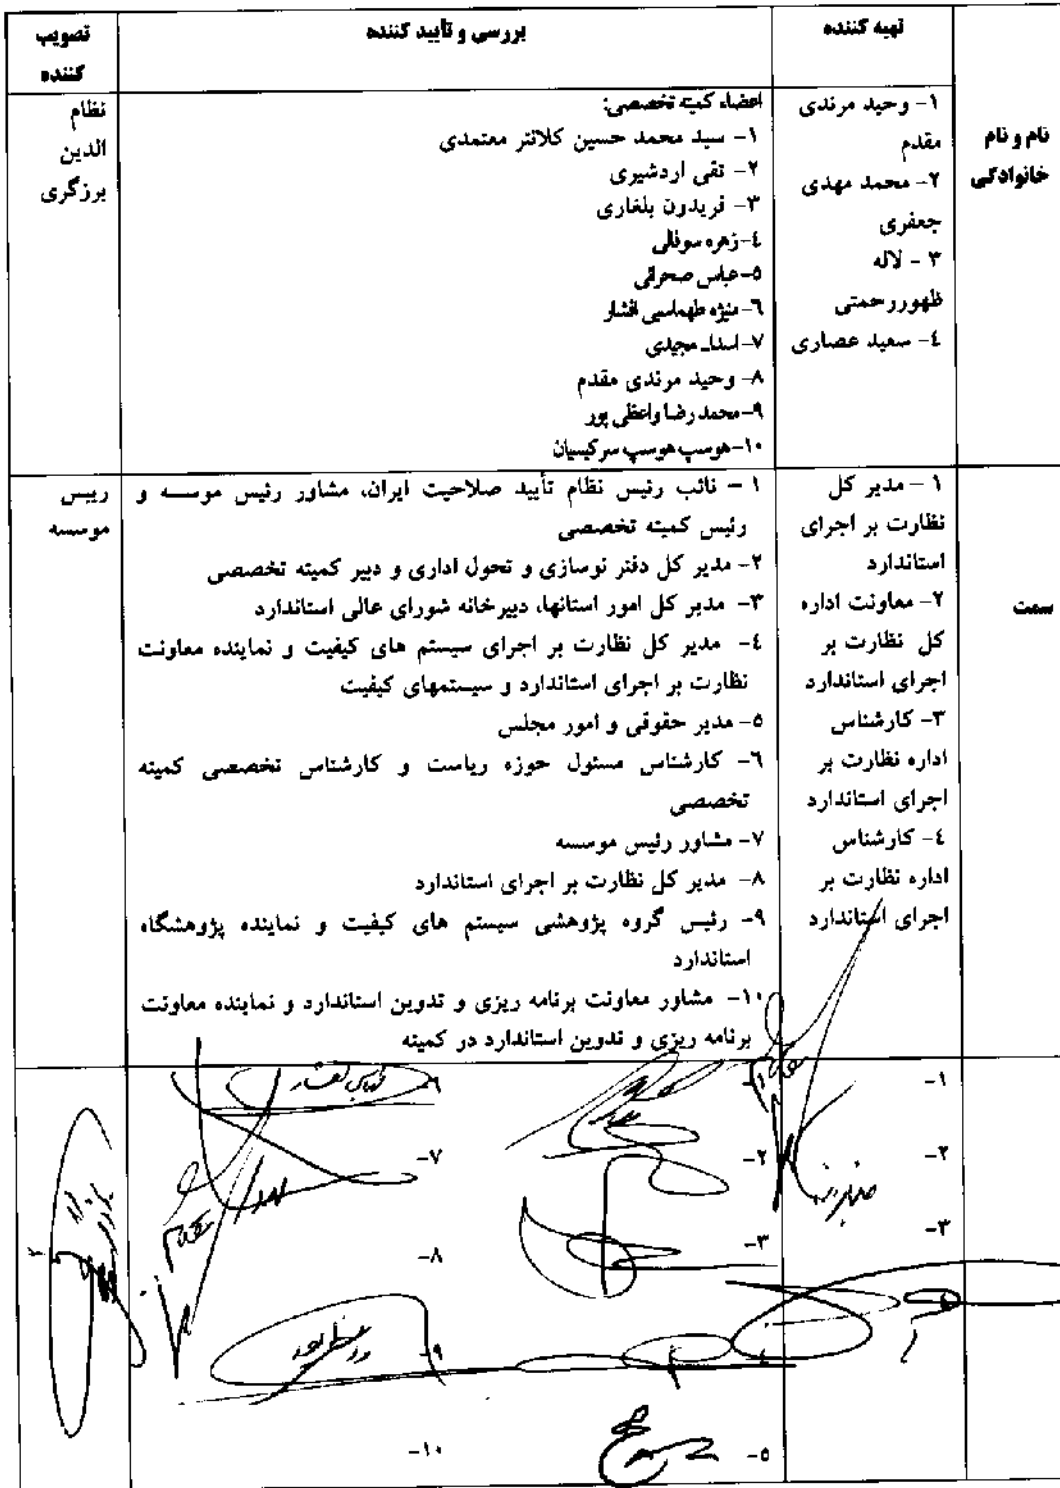 تهیه کننده
بررسی و تأیید کننده
تصویب
کننده
نام و نام
خانوادگی
۱- وحید مرندی
مقدم
۲- محمد مهدی
جعفری
۳ - لاله
ظهوررحمتی
٤- سعید عصاری
اعضاء کمیته تخصصی:
۱- سید محمد حسین کلانتر معتمدی
۲- تقی اردشیری
۳- فریدون بلغاری
٤-زهره سوفالی
٥-عباس صحرائی
٦-منیژه طهماسبی افشار
۷- مجیدی
۸- وحید مرندی مقدم
۹-محمدرضا واعظی پور
۱۰-هوسپ هوسپ سرکیسیان
نظام
الدین
برزگری
سمت
۱ – مدیر کل
نظارت بر اجرای
استاندارد
۲- معاونت اداره
کل نظارت بر
اجرای استاندارد
۳- کارشناس
اداره نظارت بر
اجرای استاندارد
٤- کارشناس
اداره نظارت بر
اجرای استاندارد
۱ – نائب رئیس نظام تأیید صلاحیت ایران، مشاور رئیس موسسه و
رئیس کمیته تخصصی
۲- مدیر کل دفتر نوسازی و تحول اداری و دبیر کمیته تخصصی
۳- مدیر کل امور استانها، دبیرخانه شورای عالی استاندارد
٤- مدیر کل نظارت بر اجرای سیستم های کیفیت و نماینده معاونت
نظارت بر اجرای استاندارد و سیستمهای کیفیت
٥- مدیر حقوقی و امور مجلس
٦- کارشناس مسئول حوزه ریاست و کارشناس تخصصی کمیته
تخصصی
۷- مشاور رئیس موسسه
۸- مدیر کل نظارت بر اجرای استاندارد
۹- رئیس گروه پژوهشی سیستم های کیفیت و نماینده پژوهشگاه
استاندارد
۱۰- مشاور معاونت برنامه ریزی و تدوین استاندارد و نماینده معاونت
برنامه ریزی و تدوین استاندارد در کمیته
رییس
موسسه
۱-
۲-
۳-
۲-
۳-
٥-
٦-
۷-
۸-
۹-
۱۰-